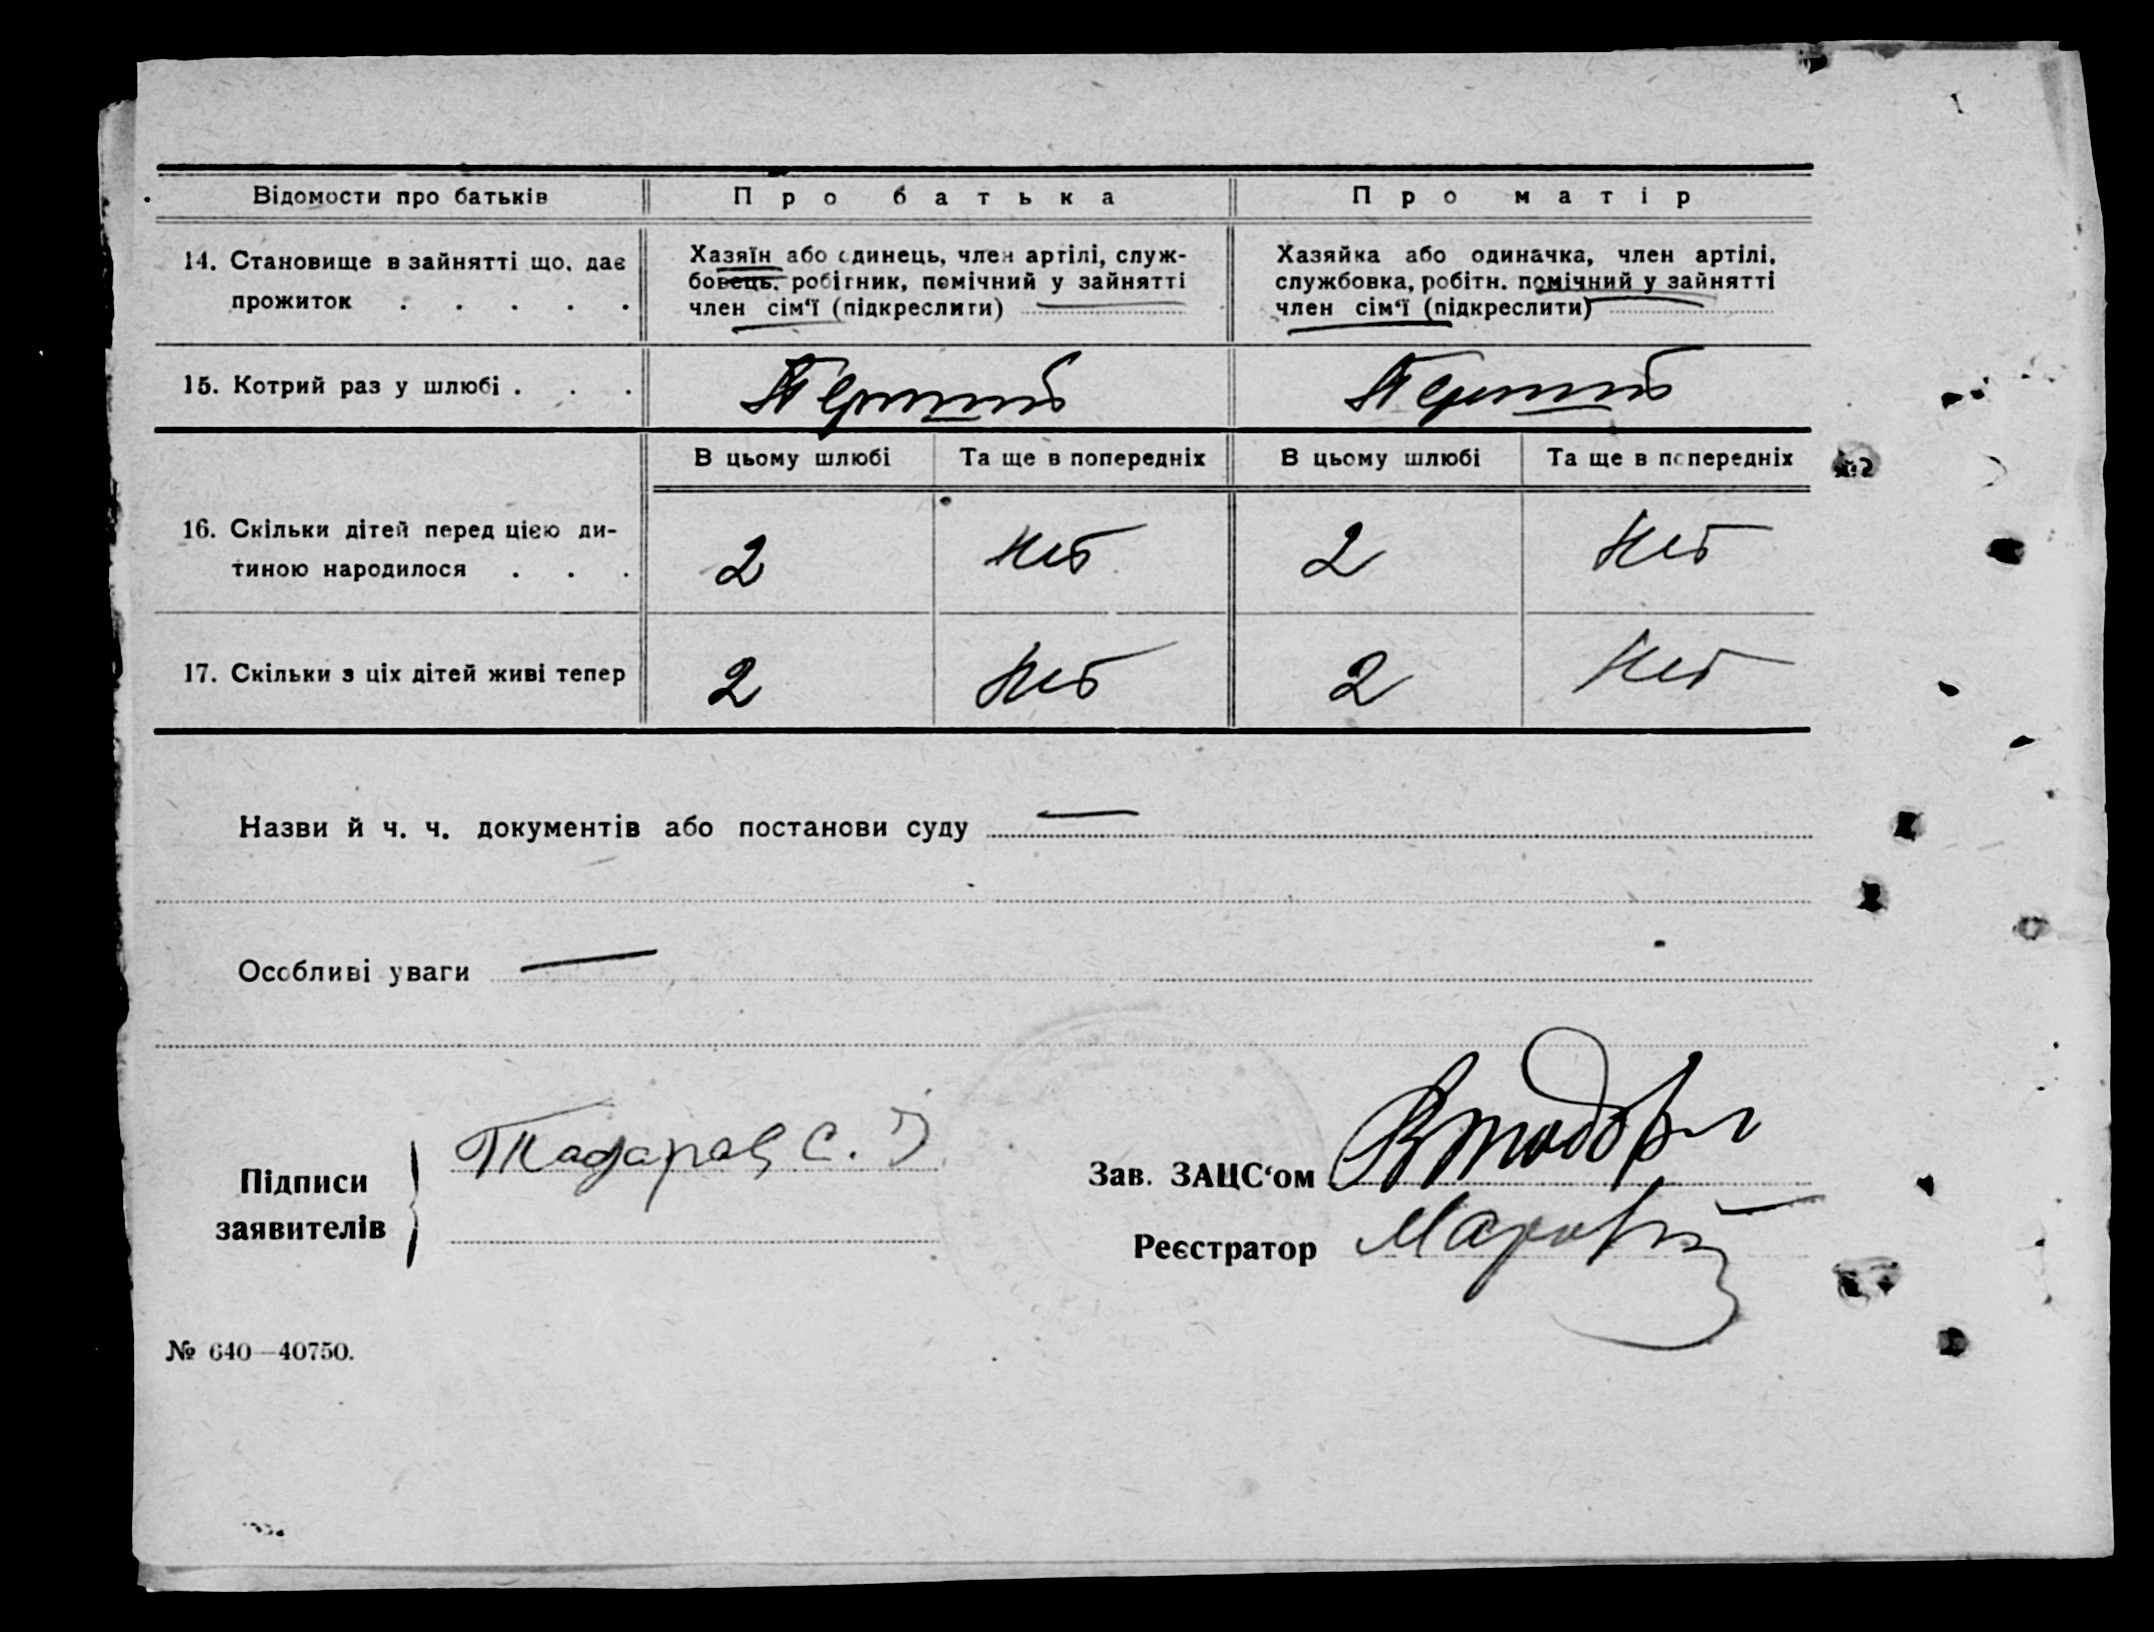 Відомости про батьків Про батька Про матір
14. Становище в зайнятті що, дає
прожиток . . . . .
Хазяїн або єдинець, член артілі, служ-
бовець, робітник, помічний у зайнятті
член сім‘ї (підкреслити)
Хазяйка або одиначка, член артілі,
службовка, робітн. помічний у зайнятті
член сім‘ї (підкреслити)
15. Котрий раз у шлюбі . . .
В цьому шлюбі Та ще в попередніх В цьому шлюбі Та ще в попередніх
16. Скільки дітей перед цією ди-
тиною народилося . . .
2 Нет 2 Нет
17. Скільки з ціх дітей живі тепер 2 Нет 2 Нет
Назви й ч. ч. документів або постанови суду —
Особливі уваги —
Підписи
заявителів
Зав. ЗАЦС‘ом
Реєстратор
№ 640—40750.